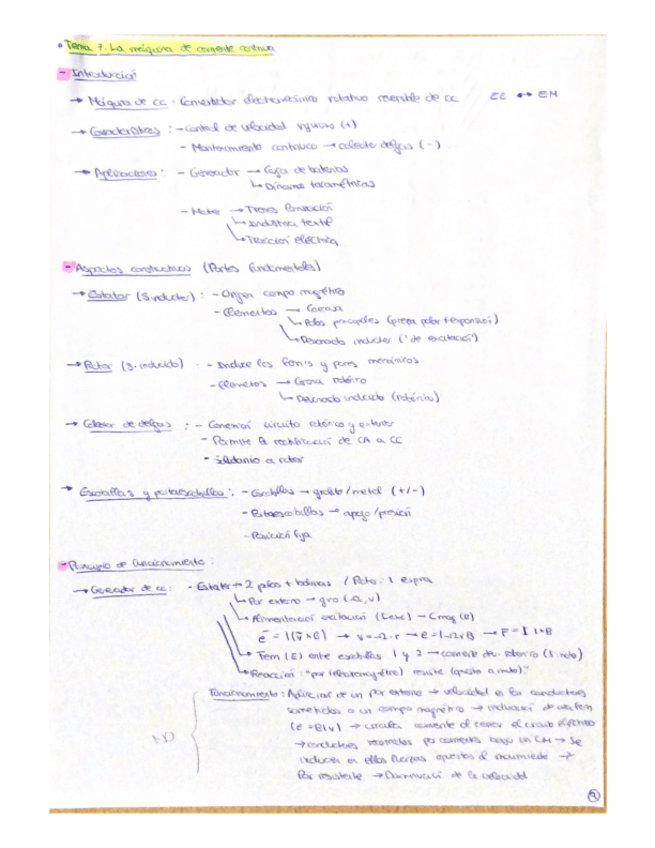 • Tema 7. La máquina de corriente continua
- Introducción
→ Máquina de CC: Convertidor electromecánico rotativo reversible de CC EE ↔ EM
→ Características: - Control de velocidad riguroso (+)
- Mantenimiento continuo → colector delgas (-)
→ Aplicaciones: - Generador → Carga de baterías
↳ Dinamos tacométricas
- Motor → Trenes laminación
↳ Industria textil
↳ Tracción eléctrica
- Aspectos constructivos (Partes fundamentales)
→ Estator (S. inductor): - Origen campo magnético
- Elementos → Corona
↳ Polos principales (pieza polar + expansión)
↳ Devanado inductor ("de excitación")
→ Rotor (S. inducido): - Induce las fem's y pares mecánicos
- Elementos → Corona rotórica
↳ Devanado inducido (rotórico)
→ Colector de delgas: - Conexión circuito rotórico y exterior
- Permite la rectificación de CA a CC
- Solidario a rotor
→ Escobillas y portaescobillas: - Escobillas → grafito/metal (+/-)
- Portaescobillas → apoyo/presión
- Posición fija
- Principio de funcionamiento:
→ Generador de cc: - Estator → 2 polos + bobinas / Rotor: 1 espira
↳ Par externo → giro (Ω, v)
↳ Alimentación excitación (Iexc) → Cmag (B)
e = l(v × B) → v = Ω · r → e = l · Ω r B → F = I l × B
↳ Fem (E) entre escobillas 1 y 2 → corriente dev. rotórico
↳ Reacción: "par (electromagnético) resiste (opuesto a motor)."
Funcionamiento: Aplicación de un par externo → velocidad en los conductores
sometidos a un campo magnético → inducción de una fem
(e = Blv) → circula corriente al cerrar el circuito eléctrico
→ conductores recorridos por corrientes bajo un CM → Se
inducen en ellos fuerzas opuestas al movimiento →
Par resistente → Disminución de la velocidad